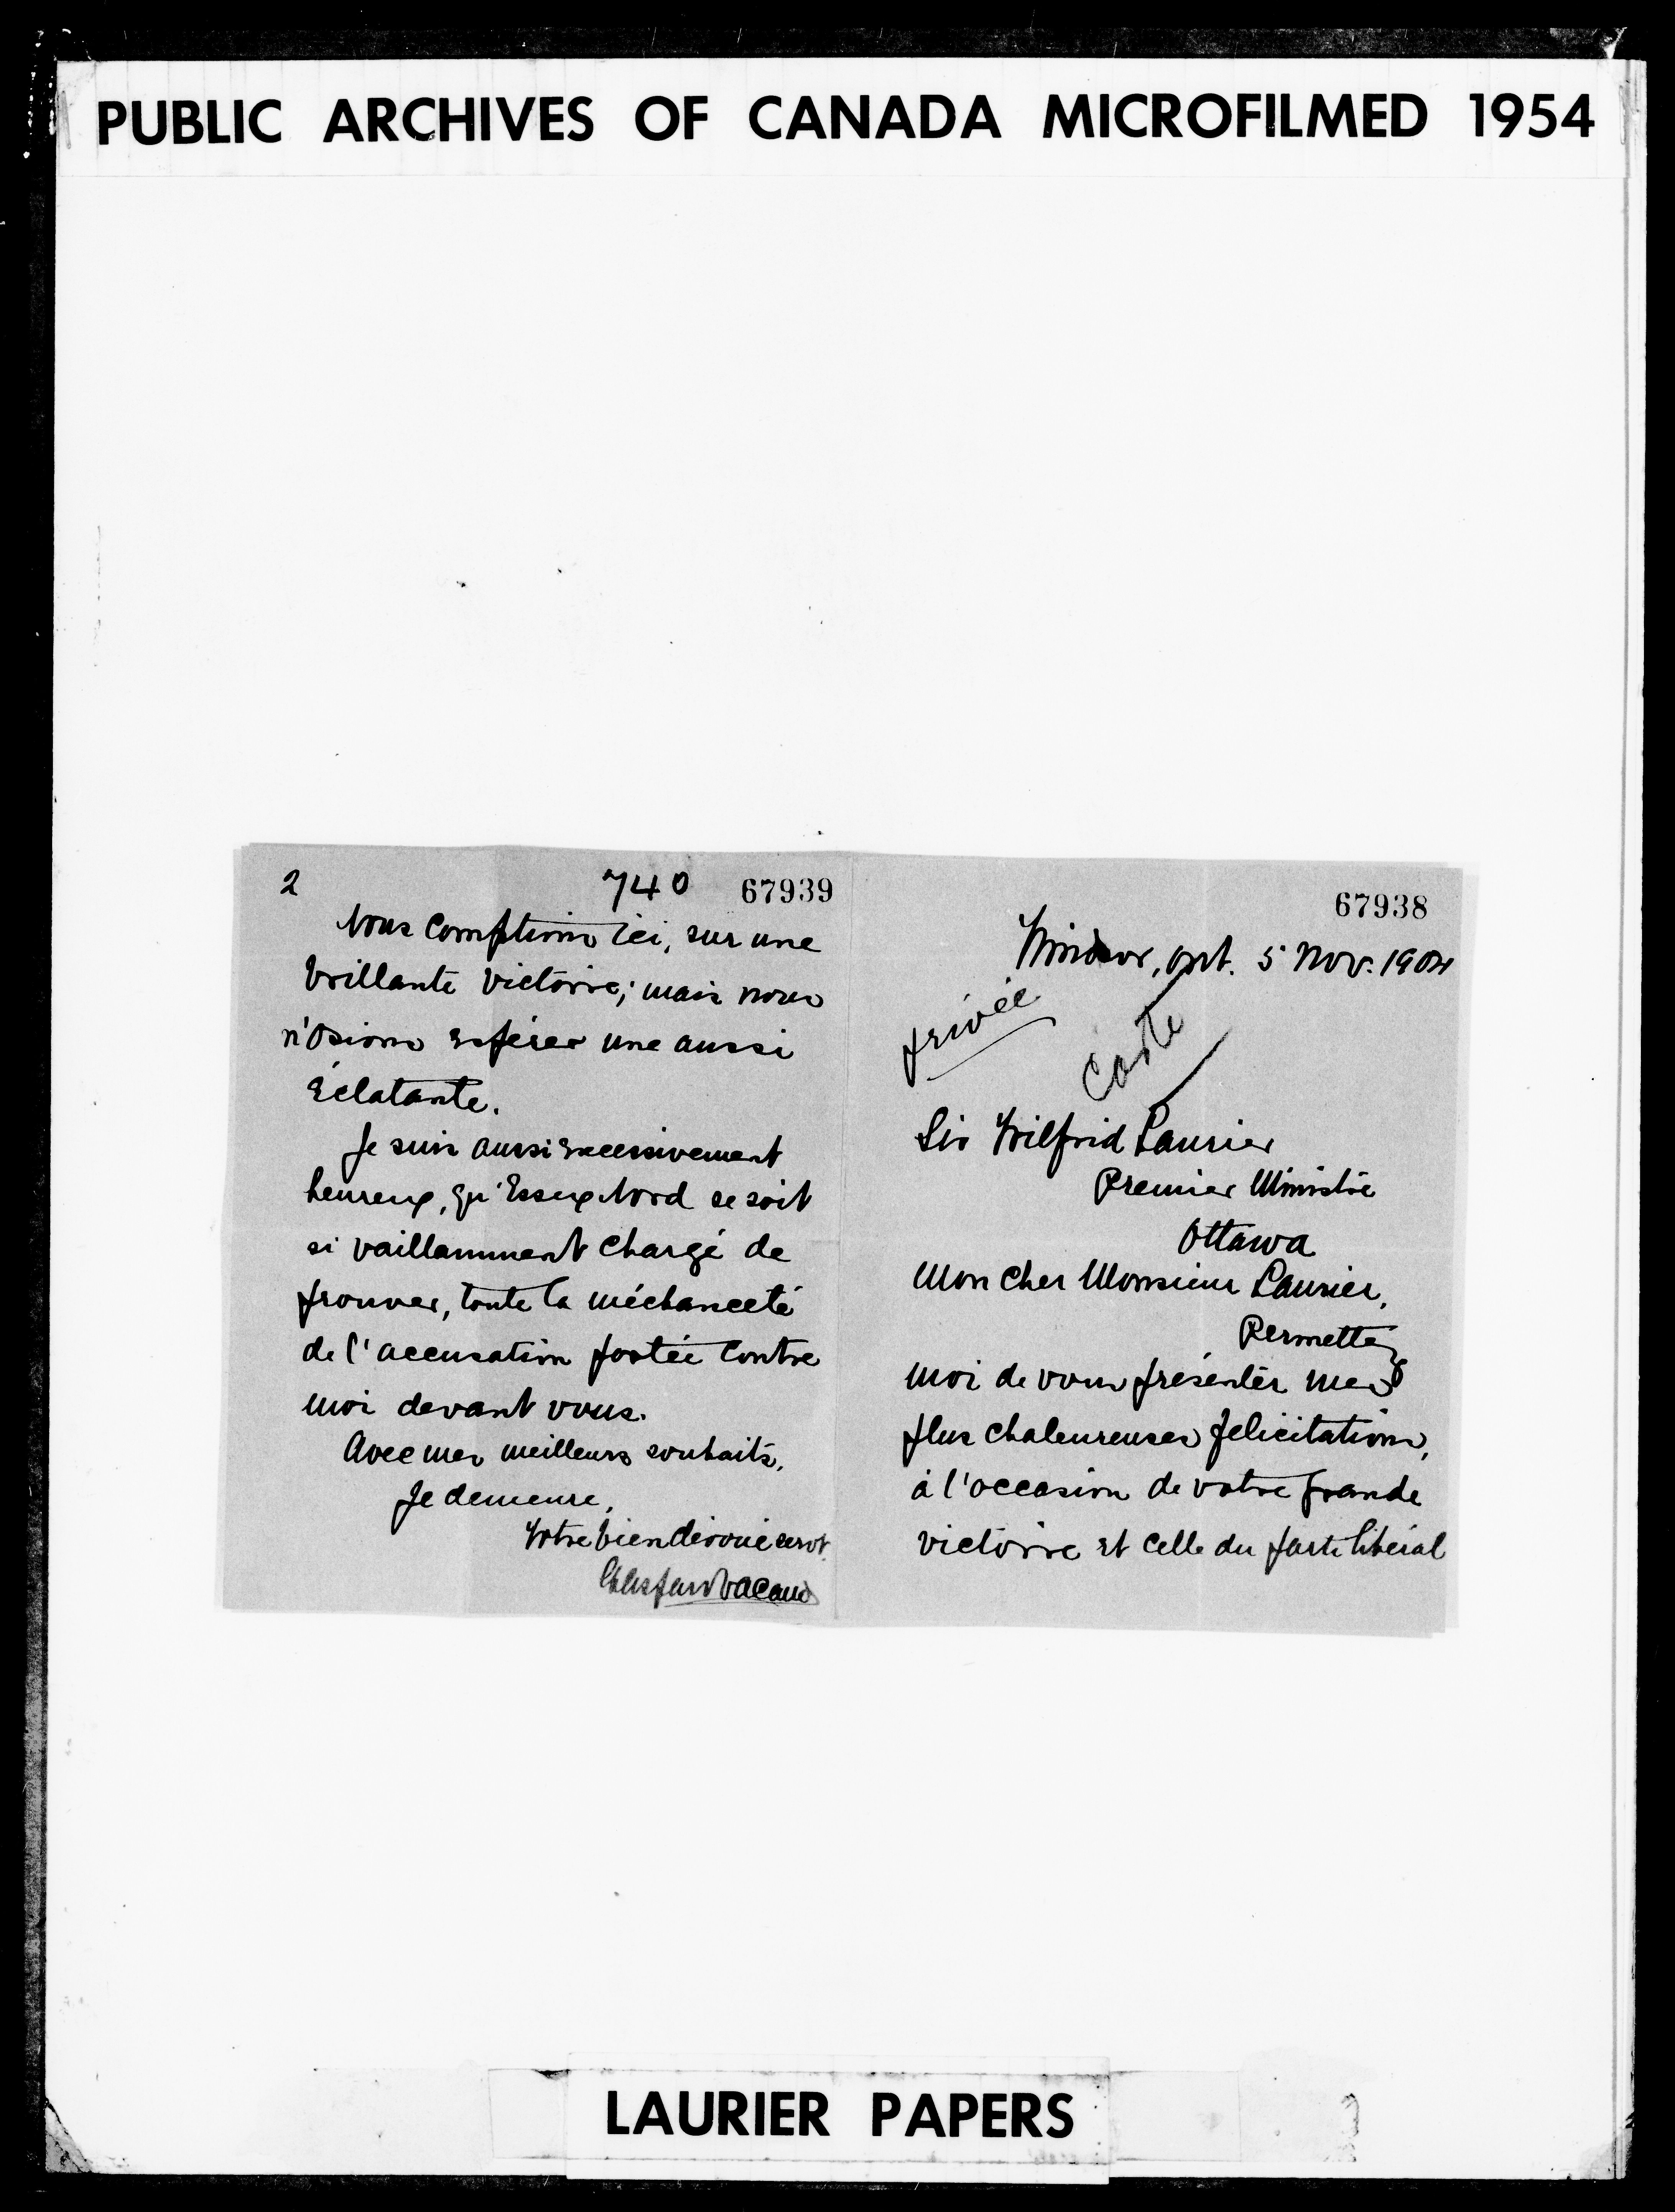 PUBLIC ARCHIVES OF CANADA MICROFILMED 1954
67938
Windsor, Ont. 5 Nov. 1904
privée
Sir Wilfrid Laurier
Premier Ministre
Ottawa
Mon cher Monsieur Laurier,
Permettez
moi de vous présenter mes
plus chaleureuses felicitations,
à l'occasion de votre grande
victoire et celle du parti libéral
2 740 67939
Nous comptions ici, sur une
brillante victoire; mais nous
n'osions espérer une aussi
éclatante.
Je suis aussi excessivement
heureux, qu'Essex Nord se soit
si vaillamment chargé de
prouver, toute la méchanceté
de l'accusation portée contre
moi devant vous.
Avec mes meilleurs souhaits,
Je demeure,
Votre bien dévoué servt.
LAURIER PAPERS